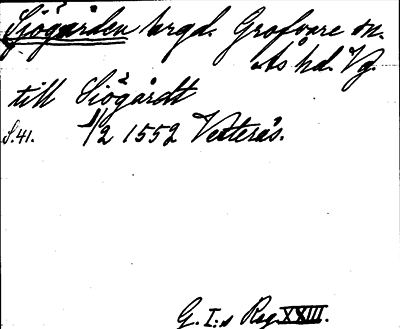 Sjögården hrgd. Grolvare sn.
Ås hd. Vg.
till Siögårdtt
S. 41. 1/2 1552 Vesterås.
G. I:s Reg. XXIII.